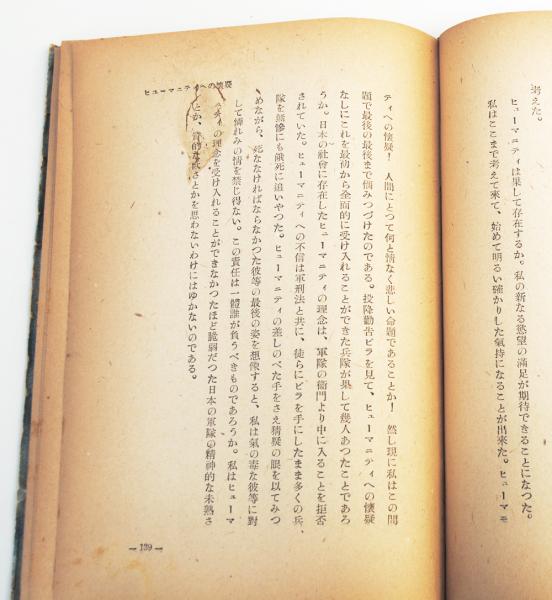 考えた。
ヒューマニティは果して存在するか。私の新なる慾望の滿足が期待できることになつた。
私はここまで考えて來て、始めて明るい確かりした氣持になることが出來た。ヒューマモ
ティへの懐疑! 人間にとつて何と情なく悲しい命題であることか! 然し現に私はこの問
題で最後の最後まで悩みつづけたのである。投降勸告ビラを見て、ヒューマニティへの懐疑
なしにこれを最初から全面的に受け入れることができた兵隊が果して幾人あつたことであろ
うか。日本の社會に存在したヒューマニティの理念は、軍隊の衞門より中に入ることを拒否
されていた。ヒューマニティへの不信は軍刑法と共に、徒らにビラを手にしたまま多くの兵、
隊を無慘にも餓死に追いやつた。ヒューマニティの差しのべた手をさえ猜疑の眼を以てみつ
めながら、死ななければならなかつた彼等の最後の姿を想像すると、私は氣の毒な彼等に對
して憐れみの情を禁じ得ない。この責任は一體誰が負うべきものであろうか。私はヒューマ
ニティの理念を受け入れることができなかつたほど脆弱だつた日本の軍隊の精神的な未熟さ
とか、的な さとかを思わないわけにはゆかないのである。
ヒューマニティへの懐疑
— 139 —